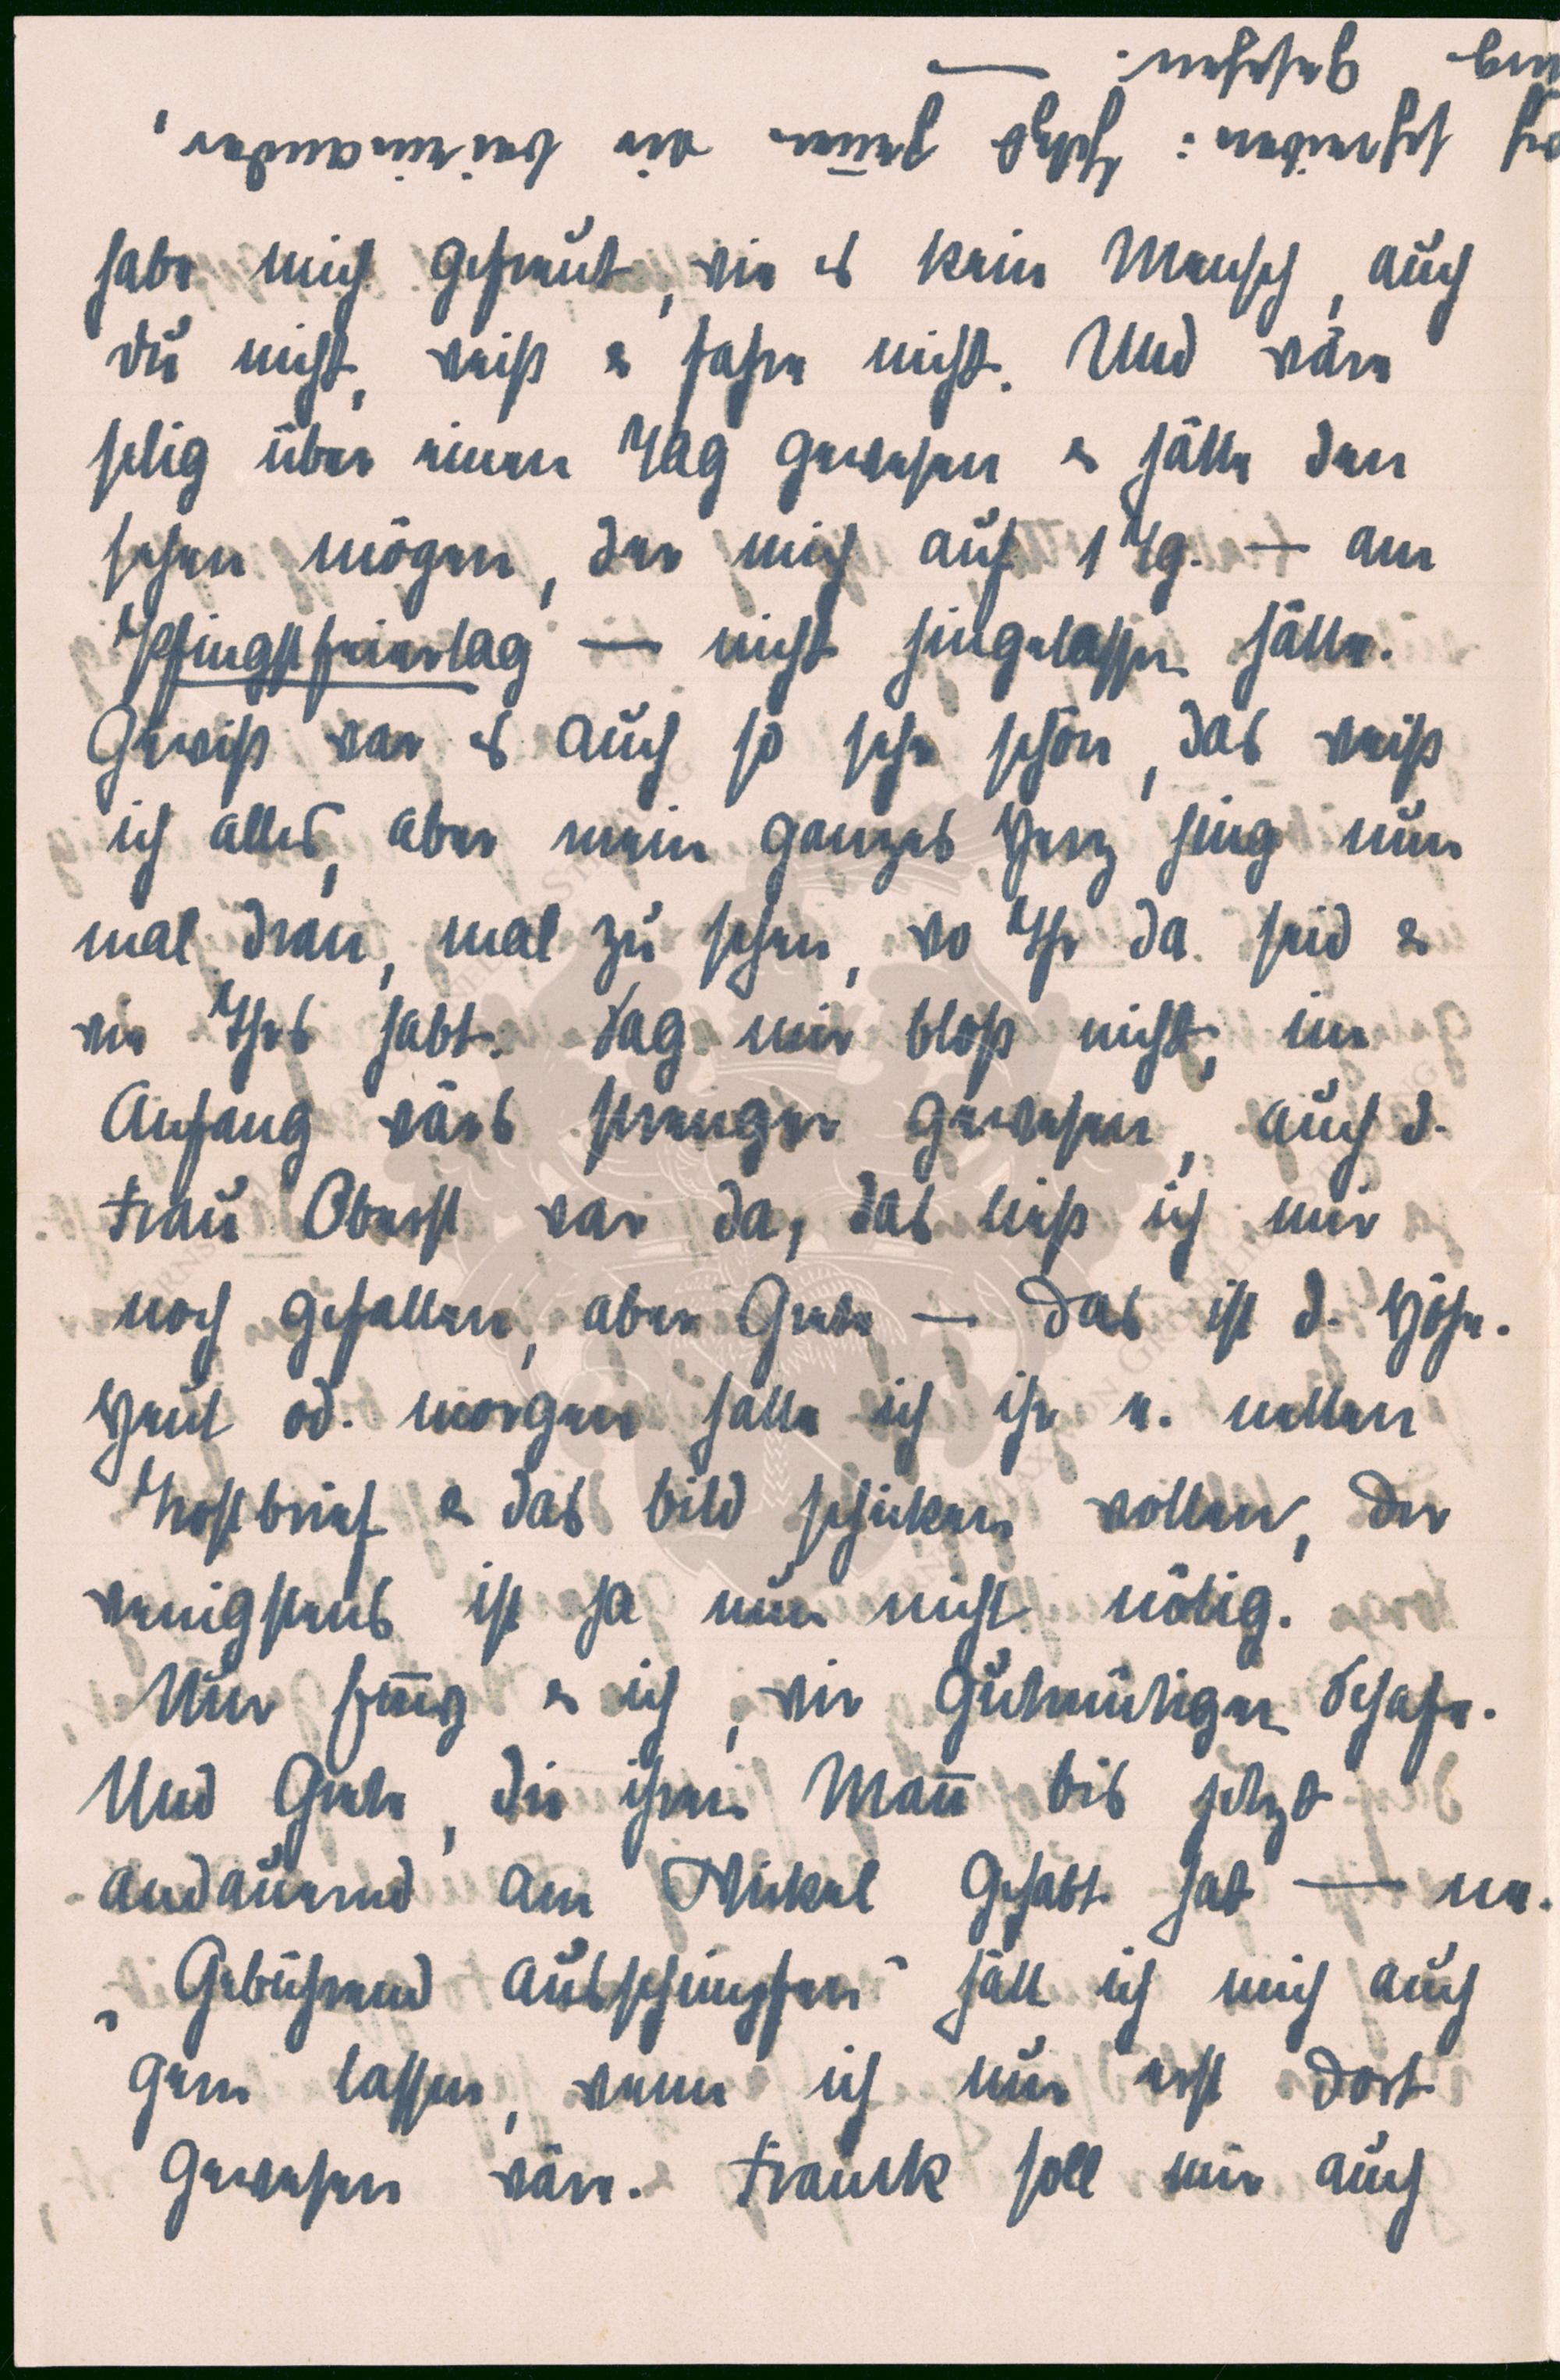 habe mich gefreut, wie es kein Mensch, auch
du nicht, weiß & fahre nicht. Und wäre
selig über einen Tag gewesen & hätte den
sehen mögen, der mich auf 1 Tg. — am
Pfingstfeiertag — nicht hingelassen hätte.
Gewiß war es auch so sehr schön, das weiß
ich alles, aber mein ganzes Herz hing nun
mal dran, mal zu sehen, wo Ihr da seid &
wie Ihrs habt. Sag mir bloß nicht, im
Anfang wärs strenger gewesen, auch d.
Frau Oberst war da, das ließ ich mir
noch gefallen, aber Grete — das ist d. Höhe.
Heut od. morgen hatte ich ihr e. netten
Trostbrief & das Bild schicken wollen, der
wenigstens ist ja nun nicht nötig.
Nur & ich, wir gutmütigen Schafe.
Und Grete, die ihren Man̄ bis jetzt
andauernd am Wickel gehabt hat — ne.
„Gebührend ausschimpfen" hätt ich mich auch
gern lassen, wenn ich nur erst dort
gewesen wäre. Franck soll mir auch
schreiben: Hylas han̄en wir beieinander,
gesehen. —